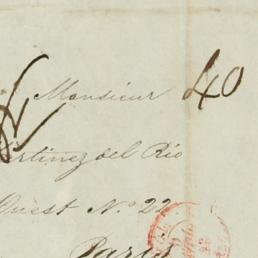 Monsieur 40
rtinez del Rio
Ouest N.o 22
Paris